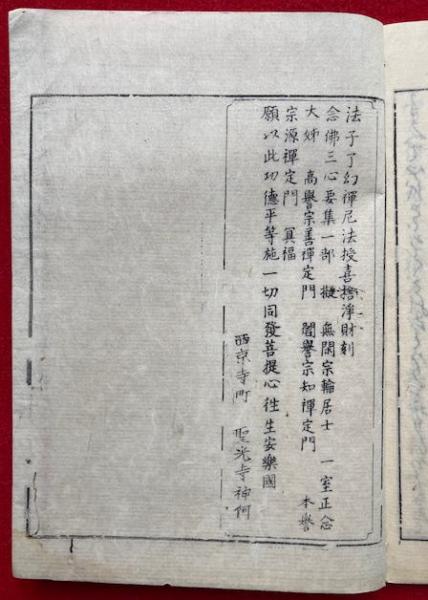 法子了幻禪尼法授喜捨淨財刻
念佛三心要集一部 擬 無關宗輪居士 一室正念
大姊 高譽宗善禪定門 閣譽宗知禪定門 本譽
宗源禪定門 冥福
願以此功德平等施一切同發菩提心往生安樂國
西京寺町 聖光寺神阿